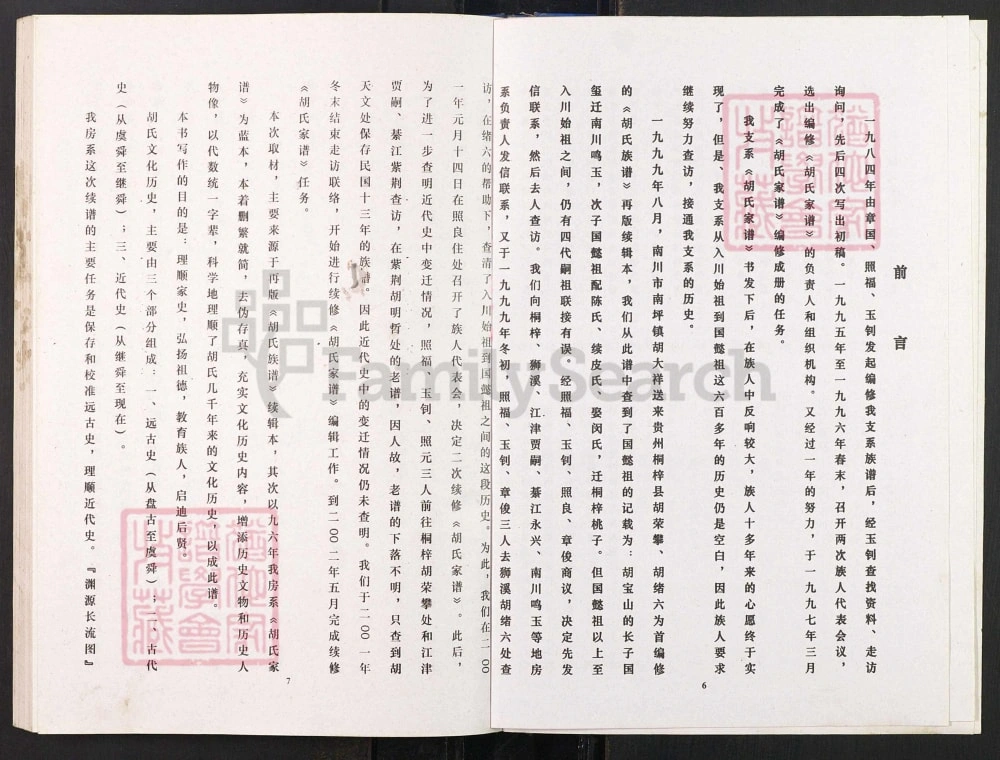 前言
一九八四年由章国、照福、玉钊发起编修我支系族谱后，经玉钊查找资料、走访
询问，先后四次写出初稿。一九九五年至一九九六年春末，召开两次族人代表会议，
选出编修《胡氏家谱》的负责人和组织机构。又经过一年的努力，于一九九七年三月
完成了《胡氏家谱》编修成册的任务。
我支系《胡氏家谱》书发下后，在族人中反响较大，族人十多年来的心愿终于实
现了，但是、我支系从入川始祖到国懿祖这六百多年的历史仍是空白，因此族人要求
继续努力查访，接通我支系的历史。
一九九九年八月，南川市南坪镇胡大祥送来贵州桐梓县胡荣攀、胡绪六为首编修
的《胡氏族谱》再版续辑本，我们从此谱中查到了国懿祖的记载为：胡宝山的长子国
玺迁南川鸣玉，次子国懿祖配陈氏、续皮氏、娶闵氏，迁桐梓桃子。但国懿祖以上至
入川始祖之间，仍有四代嗣祖联接有误。经照福、玉钊、照良、章俊商议，决定先发
信联系，然后去人查访。我们向桐梓、狮溪、江津贾嗣、綦江永兴、南川鸣玉等地房
系负责人发信联系，又于一九九九年冬初，照福、玉钊、章俊三人去狮溪胡绪六处查
6
访，在绪六的帮助下，查清了入川始祖到国懿祖之间的这段历史。为此，我们在二00
一年元月十四日在照良住处召开了族人代表会，决定二次续修《胡氏家谱》。此后，
为了进一步查明近代史中变迁情况，照福、玉钊、照元三人前往桐梓胡荣攀处和江津
贾嗣、綦江紫荆查访，在紫荆胡明哲处的老谱，因人故，老谱的下落不明，只查到胡
天文处保存民国十三年的族谱。因此近代史中的变迁情况仍未查明。我们于二00一年
冬末结束走访联络，开始进行续修《胡氏家谱》编辑工作。到二00二年五月完成续修
《胡氏家谱》任务。
本次取材，主要来源于再版《胡氏族谱》续辑本，其次以九六年我房系《胡氏家
谱》为蓝本，本着删繁就简，去伪存真，充实文化历史内容，增添历史文物和历史人
物像，以代数统一字辈，科学地理顺了胡氏几千年来的文化历史，以成此谱。
本书写作的目的是：理顺家史，弘扬祖德，教育族人，启迪后贤。
胡氏文化历史，主要由三个部分组成：一、远古史（从盘古至虞舜）；二、古代
史（从虞舜至继舜）；三、近代史（从继舜至现在）。
我房系这次续谱的主要任务是保存和校准远古史，理顺近代史。『渊源长流图』
7
FamilySearch